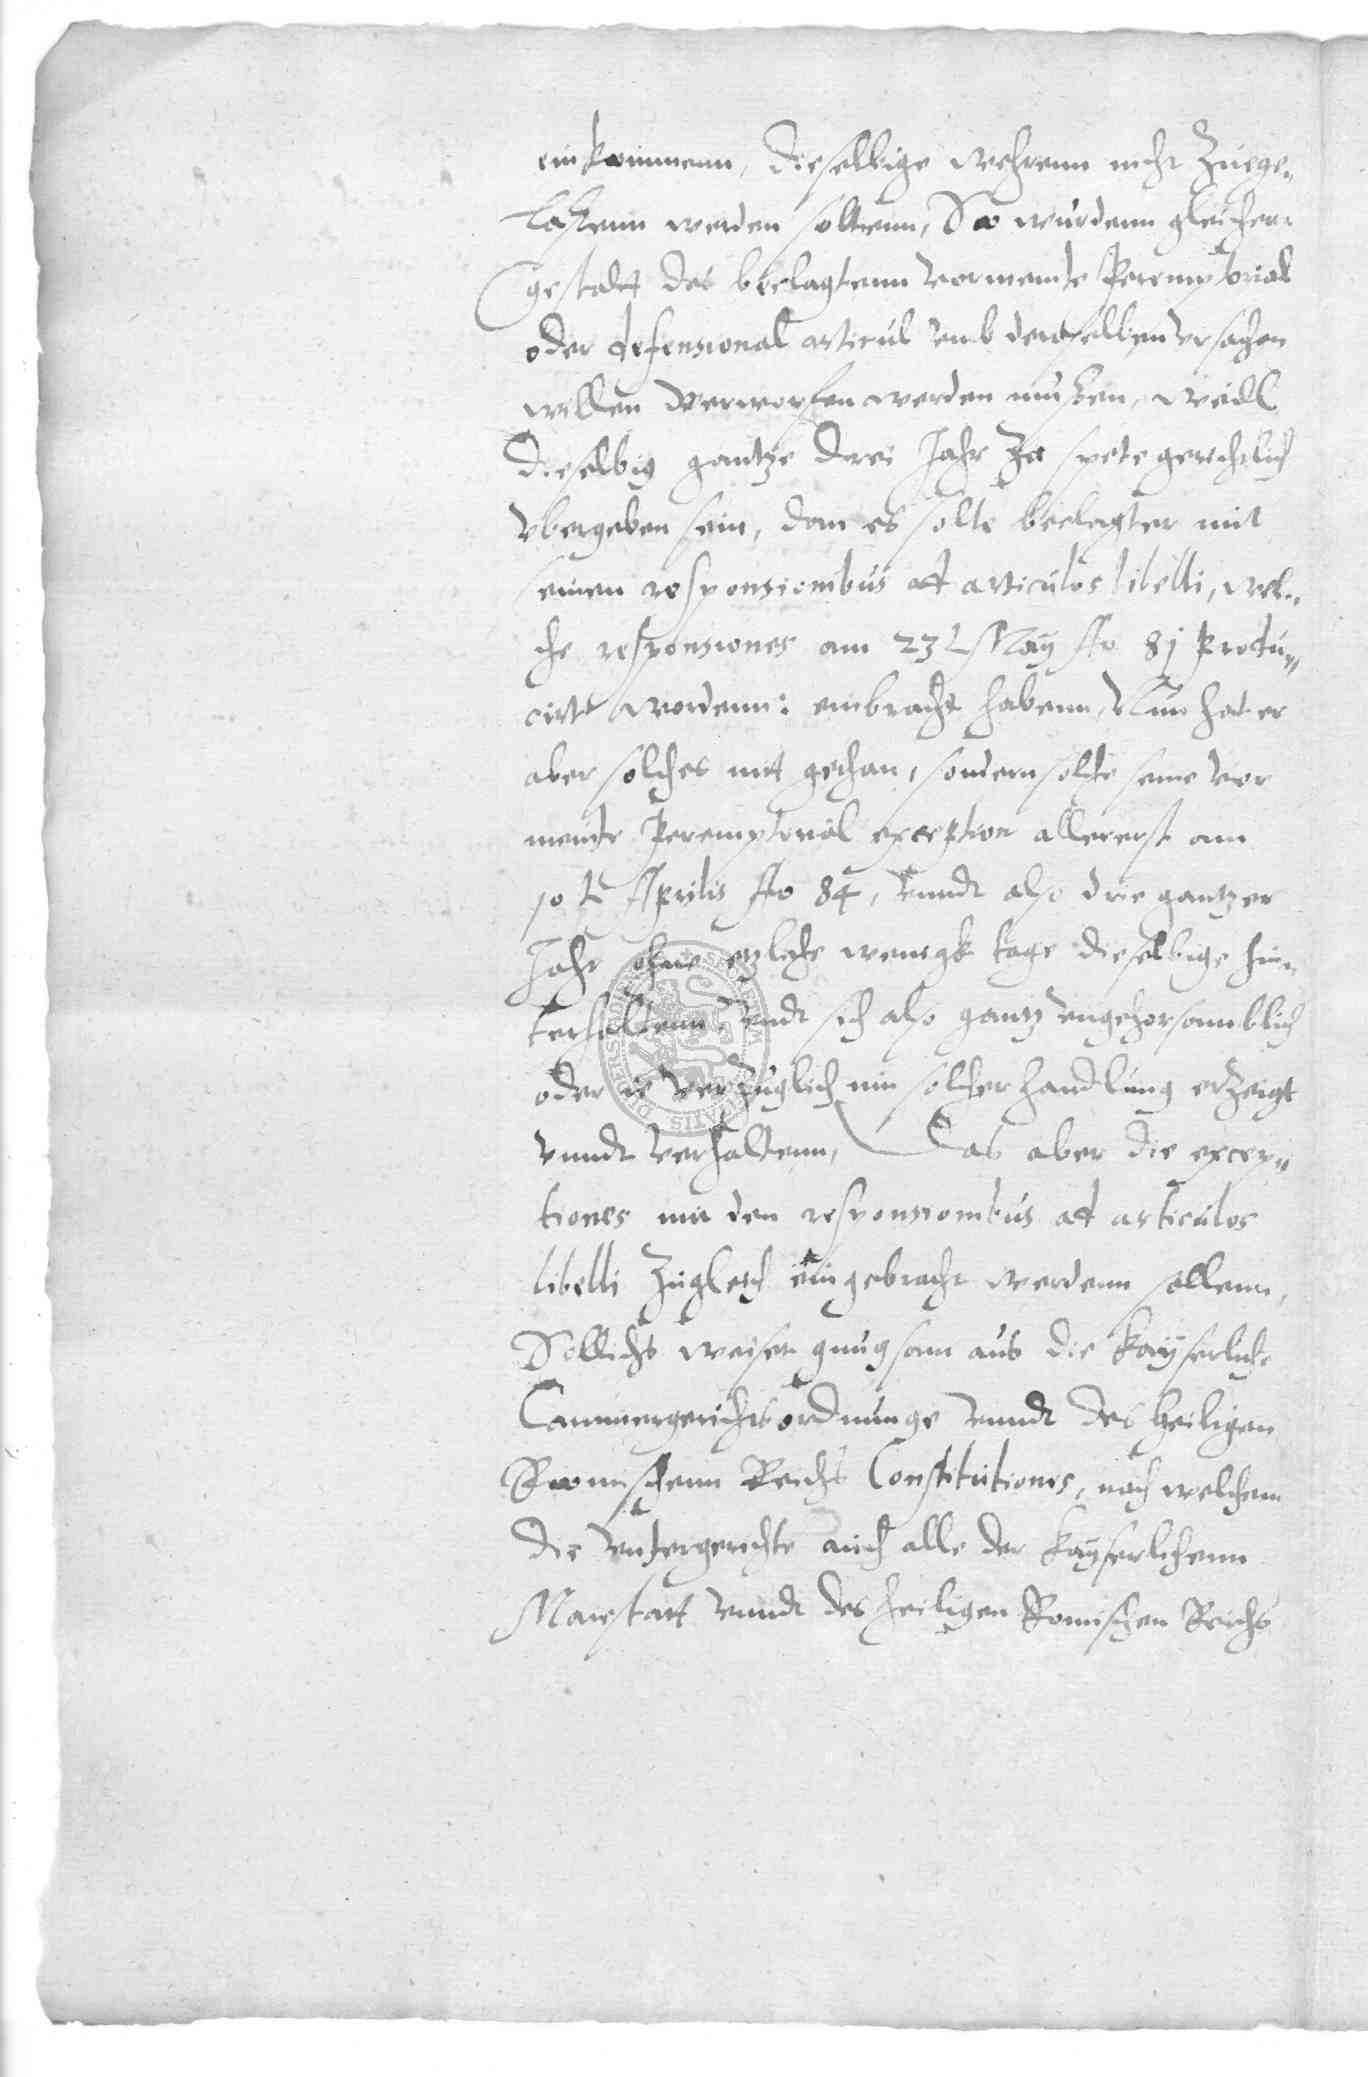 einkommenn, dieselbige wehrenn nicht Zuege„
laßenn werden soltenn, So wurdenn gleicher„
gestaldt des beclagtenn vormeinte Peremptorial
oder defensional articul vmb derselben vrsachen
willen verworfen werden mußen, weill
dieselbig gantze drei Jahr Zu spete gerichtlich
vbergeben sein, dan es solte beclagter mit
seinen responsionibus ad articulos libelli, wel„
che responsiones am 23 t May Ao 81 produ„
cirt wordenn: einbracht habenn, Nun hat er
aber solches nit gethan, sondern solche seine vor
meinte Peremptorial exception allererst am
10 t Aprilis Ao 84, vnndt also drie gantzer
Jahr ohne etzliche wenigk tage dieselbige hin„
terhaltenn, vndt sich also gantz vngehorsamblich
oder ie verzuglich inn solcher handlung erzeigt
vnndt verhaltenn, Das aber die excep„
tiones mit den responsionibus ad articulos
libelli Zugleich eingebracht werdenn sollenn,
Sollichs weisen gnugsam aus die Kayserliche
Cammergerichtsordnunge vnndt des heiligen
Romischenn Reichs Constitutiones, nach welchenn
die vntergerichte auch alle der Kayserlichenn
Maiestatt vnndt des heiligen Romischen Reichs